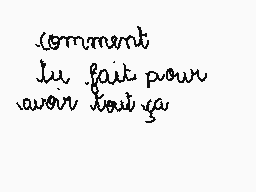 comment
tu fait pour
avoir tout ça